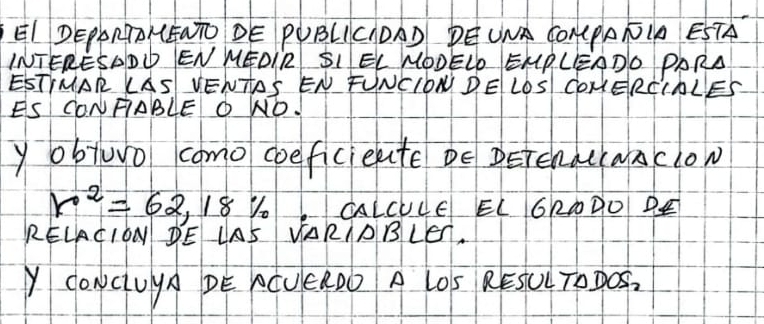 El DEPARTAMENTO DE PUBLICIDAD DE UNA COMPAÑIA ESTA
INTERESADO EN MEDIR SI EL MODELO EMPLEADO PARA
ESTIMAR LAS VENTAS EN FUNCION DE LOS COMERCIALES
ES CONFIABLE O NO.
Y Obtuvo como coeficiente DE DETERMINACION
r² = 62,18 % . CALCULE EL GRADO DE
RELACION DE LAS VARIABLES.
Y CONCLUYA DE ACUERDO A LOS RESULTADOS.